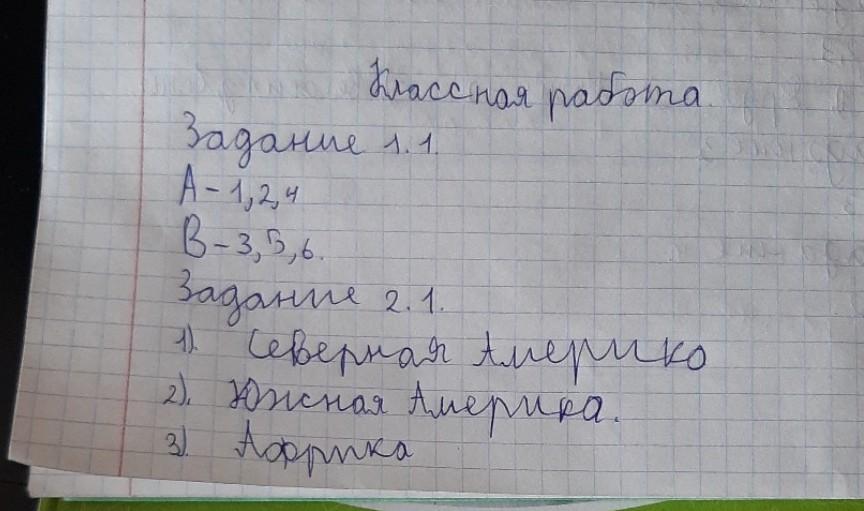 Классная работа
Задание 1.1.
А – 1, 2, 4
В – 3, 5, 6.
Задание 2.1.
1). Северная Америко
2). Южная Америка.
3) Африка